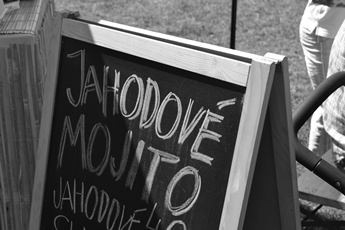 JAHODOVÉ
MOJITO
JAHODOVÉ